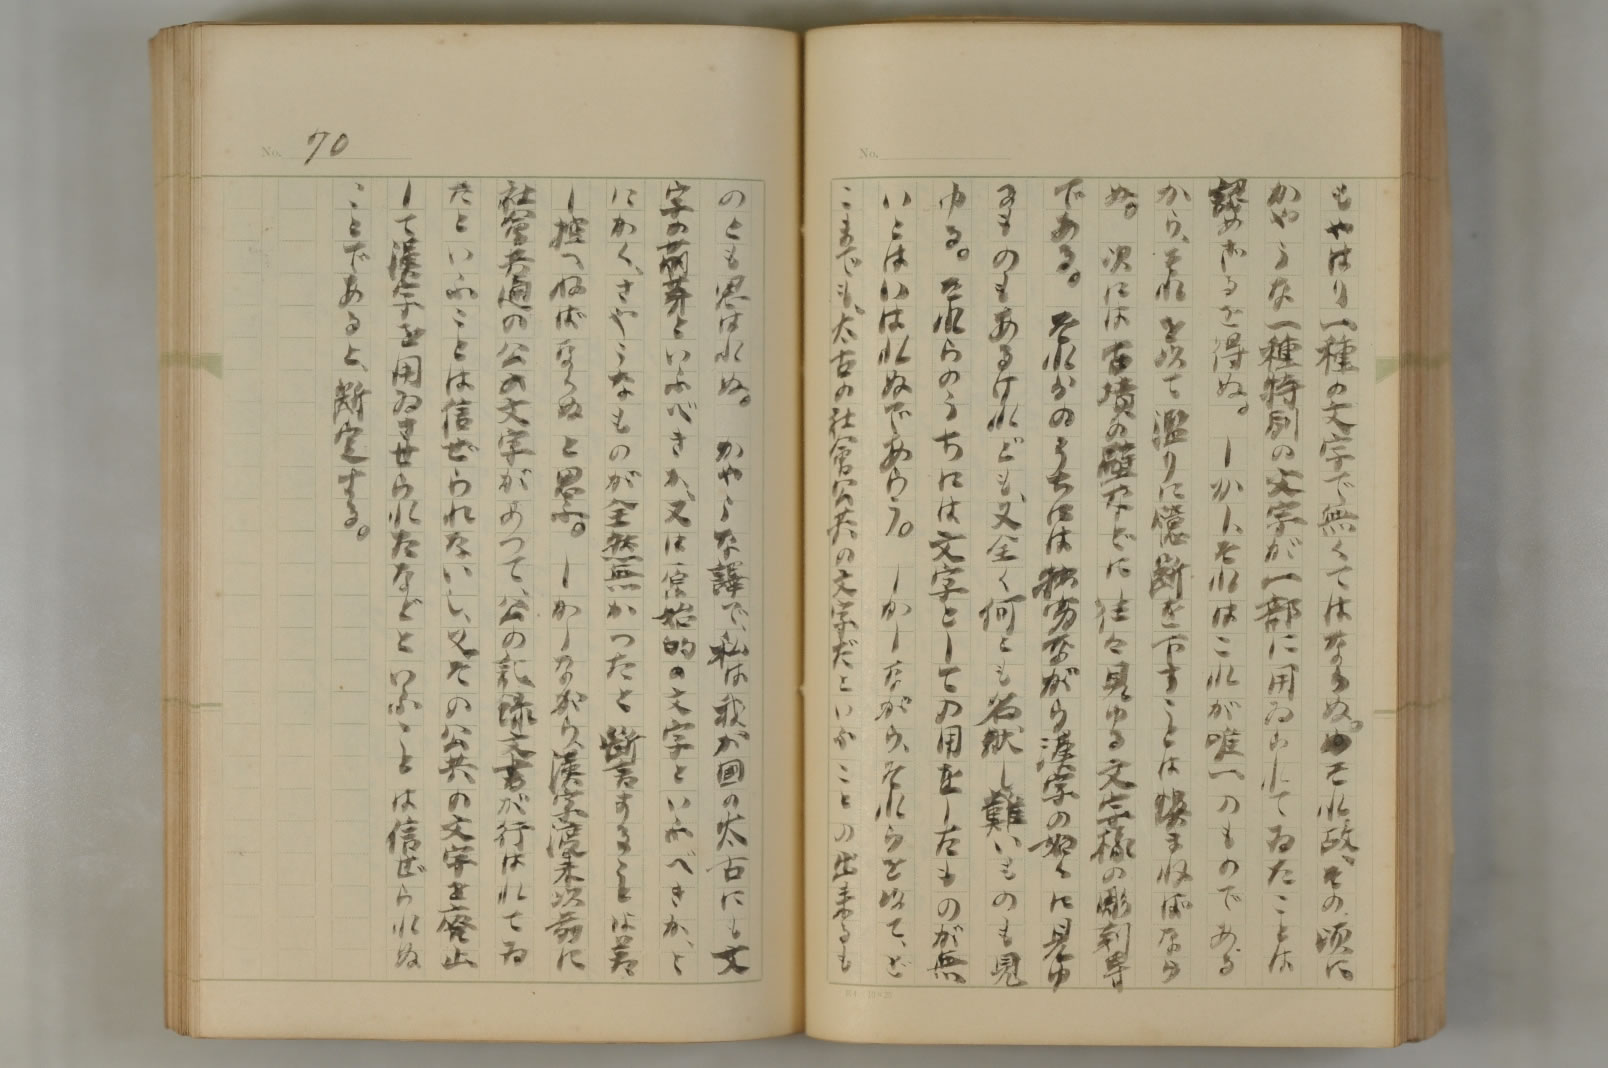 もやはり一種の文字で無くてはならぬ。それ故、その頃に
かやうな一種特別の文字が一部に用ゐられてゐたことは
認めざるを得ぬ。しかしそれはこれが唯一のものである
から、それを以て濫りに憶断を下すことは慎まねばなら
ぬ。次には古墳の壁などに往々見ゆる文字様の彫刻等
である。それらのうちには勿論ながら漢字の如くに見ゆ
るものもあるけれども、又全く何とも名状し難いものも見
ゆる。それらのうちには文字としての用をしたものが無
いとはいはれぬであらう。しかしながら、それらを以て、ど
こまでも、太古の社會公共の文字だといふことの出来るも
No. 70
No.
のとも思はれぬ。かやうな譯で、私は我が国の太古にも文
字の萌芽といふべきか、又は原始的の文字といふべきか、と
にかく、さやうなものが全然無かつたと断言することは差
し控へねばならぬと思ふ。しかしながら、漢字渡来以前に
社會共通の公の文字があつて、公の記録文書が行はれてゐ
たといふことは信ぜられないし、又その公共の文字を廃止
して漢字を用ゐさせられたなどといふことは信ぜられぬ
ことであると、断定する。